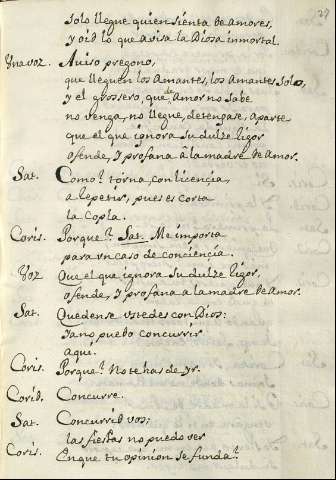 29
Solo llegue quien sienta de amores,
y oid lo que avisa la Diosa inmortal.
Una voz. Aviso pregono,
que lleguen los Amantes, los Amantes solo,
y el grossero, que de Amor no sabe
no venga, no llegue, detengase, aparte
que el que ignora su dulze rigor
ofende, y profana â la madre de Amor.
Sat. Como? torna, con licençia,
a repetir, pues es corta
la copla.
Coris. Porque? Sat. Me importa
para un caso de conçiençia.
Voz Que el que ignora su dulze rigor,
ofende, y profana â la madre de Amor.
Sat. Quedense ustedes con Dios:
ya no puedo concurrir
aqui.
Coris. Porque? No te has de yr.
Corid. Concurre.
Sat. Concurrid vos;
las fiestas no puedo ver
Coris. En que tu opinion se funda?